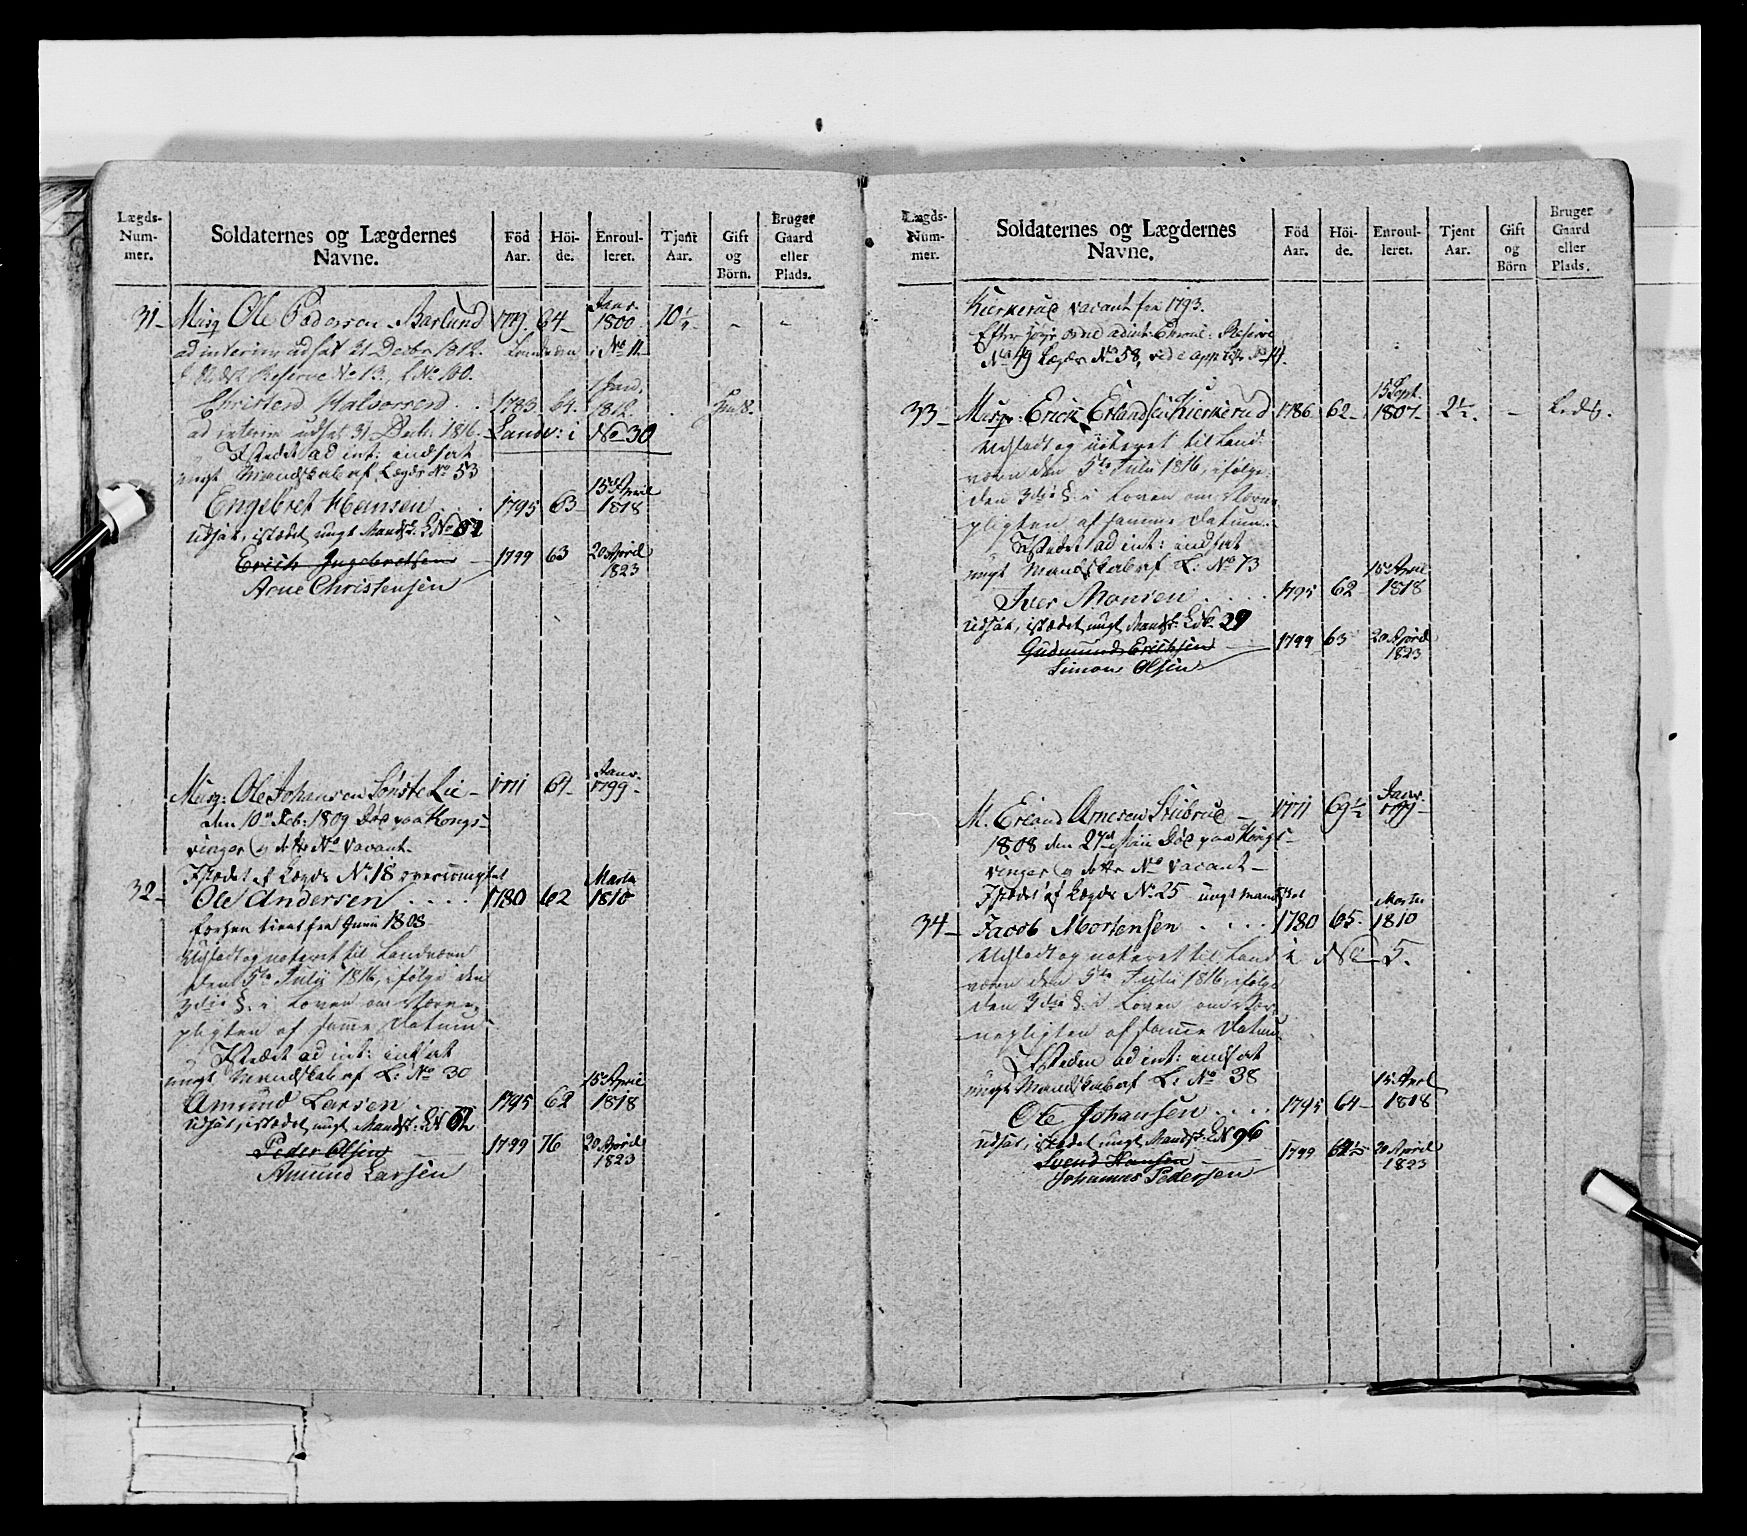 Lægds-
Num-
mer.
Soldaternes og Lægdernes
Navne.
Föd
Aar.
Höi-
de.
Enroul-
leret.
Tjent
Aar.
Gift
og
Börn.
Bruger
Gaard
eller
Plads.
31 - Musq Ole Pedersen Barlund 1779. 64 - Janr 1800 10½ - -
ad interim udsat 31 Decbr 1812. Landværn i No 11
Reserve No 13, L No 100.
Christen Halvorsen . . 1783 64. Jan. 1812.
ad interim udsat 31 Decb: 1816. Landv: i No 30
Istedet ad int: indsat
ungt Mandskab af Lægds No 53
Engebret Hansen . . . 1795 63 15de April 1818
udsat, istædet ungt Mandsk:
Erich Ingebretsen - 1799 63 20 April 1823
Arne Christensen
Musq: Ole Johansen Lie - 1771 61 - Janr. 1799 -
den 10de Feb: 1809 Död paa Kongs-
vinger og dette No Vacant -
Istædet af Lægds No 18
32 - Ole Andersen . . . . 1780 62 Martz 1810
fra Junii 1808
Udstadt og noteret til Landværn
den 5te Julii 1816, ifølge den
3die §. i Loven om Værne-
pligten af samme Datum
Istedet ad int: indsat
ungt Mandskab af L: No 30
Amund Larsen . 1795 62 15de April 1818
udsat, istædet ungt Mandsk: 62
Peder Olsen - 1799 76 20 April 1823
Amund Larsen
Lægds-
Num-
mer.
Soldaternes og Lægdernes
Navne.
Föd
Aar.
Höi-
de.
Enroul-
leret.
Tjent
Aar.
Gift
og
Börn
Bruger
Gaard
eller
Plads.
Kierkerud vacant fra 1793.
Efter
No 49 Lægds No 58,
33 - Musq: Erick Erlandsen Kierkerud 1786 62 - 15 Sept. 1807 - 2½. -
Udstadt og noteret til Land-
værn den 5te Julii 1816, ifølge
den 3die §. i Loven om Værne
pligten af samme Datum.
Istedet ad int: indsat
ungt Mandskab af L: No 73
Iver Monsen . . . . 1795 62 - 15de April 1818
udsat, istædet ungt Mandsk: 29
Gudmund Erichsen - 1799 63 20 April 1823
Simon Olsen
M. Erland Arnesen Stubrud - 1771 69½ Janr. 1799 -
1808 den 27de Maii Död paa Kongs-
vinger og dette No Vacant -
Istædet af Lægds No 25 ungt
34 - Jacob Mortensen . . . . 1780 65 - Martz 1810
Udstadt og noteret til Land i No - 5.
værn den 5te Julii 1816, ifølge
den 3die §. i Loven om Vær-
nepligten af samme Datum
Isteden ad int: indsat
ungt Mandskab af L: No 38
Ole Johansen . . . . 1795 64 - 15 April 1818
udsat, istædet ungt Mandsk: 96
Svend Hansen - 1799 20 April 1823
Johannes Pedersen